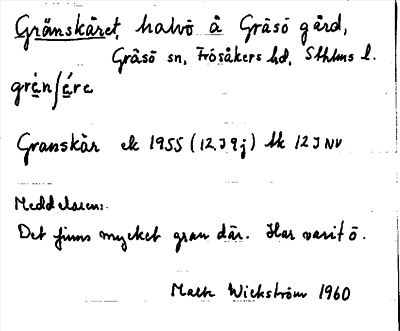 Gränskäret, halvö å Gräsö gård,
Gräsö sn, Frösåkers hd, Sthlms l.
Granskär ek 1955 (12J9j) tk 12J NV
Meddelaren:
Det finns mycket gran där. Har varit ö.
Wickström 1960